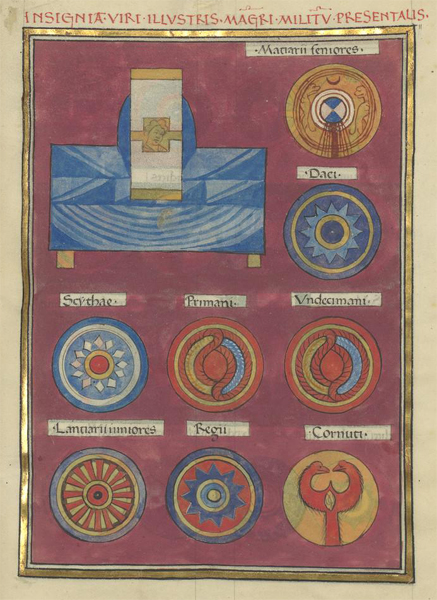 INSIGNIA·VIRI·ILLVSTRIS·MAGRI·MILITV·PRESENTALIS.
·Matiarii seniores·
·Daci·
Scythae·
Primani·
Vndecimani·
·Lanciarii iuniores
·Regii
·Cornuti·